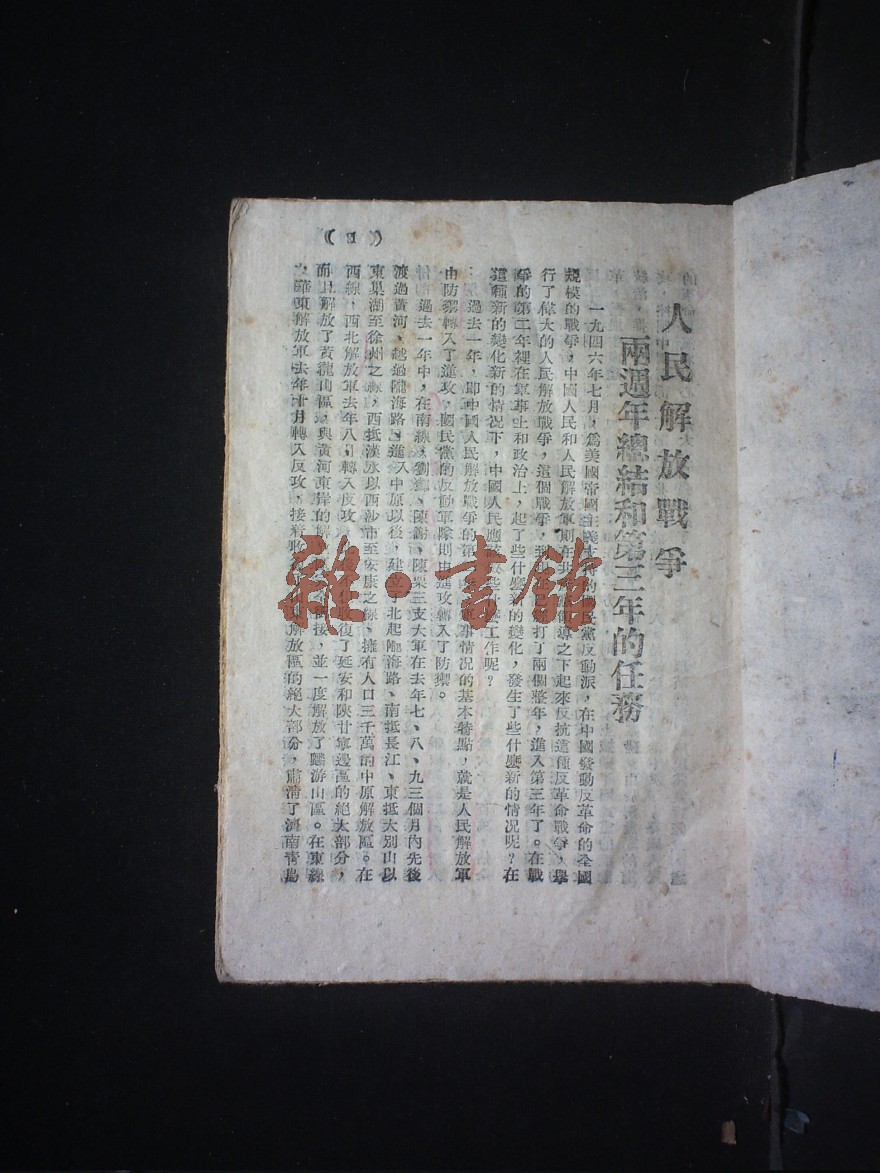 人民解放戰爭
兩週年總結和第三年的任務
一九四六年七月，爲美國帝國主義
民黨反動派，在中國發動反革命的全國
規模的戰爭，中國人民和人民解放軍則在
導之下起來反抗這種反革命戰爭，舉
行了偉大的人民解放戰爭，這個戰爭，到
打了兩個整年，進入第三年了。在戰
爭的第二年裡在軍事上和政治上，起了些什麼新的變化，發生了些什麼新的情況呢？在
這種新的變化新的情況下，中國人民應
些
工作呢？
過去一年，即中國人民解放戰爭的第
軍事情況的基本特點，就是人民解放軍
由防禦轉入了進攻，國民黨的反動軍隊則由進攻轉入了防禦。
過去一年中，在南線，劉鄧、陳謝、陳粟三支大軍在去年七、八、九三個月內先後
渡過黃河，越過隴海路，進入中原以後，建立了北起隴海路、南抵長江、東抵大別山以
東巢湖至徐州之線，西抵漢水以西沙市至安康之線，擁有人口三千萬的中原解放區。在
西線，西北解放軍去年八月轉入反攻
收復了延安和陝甘寧邊區的絕大部分，
而且解放了黃龍山區，與黃河東岸的解
接，並一度解放了麟游山區。在東線
華東解放軍去年十月轉入反攻，接着收
解放區的絕大部份，肅清了濟南青島
雜·書館